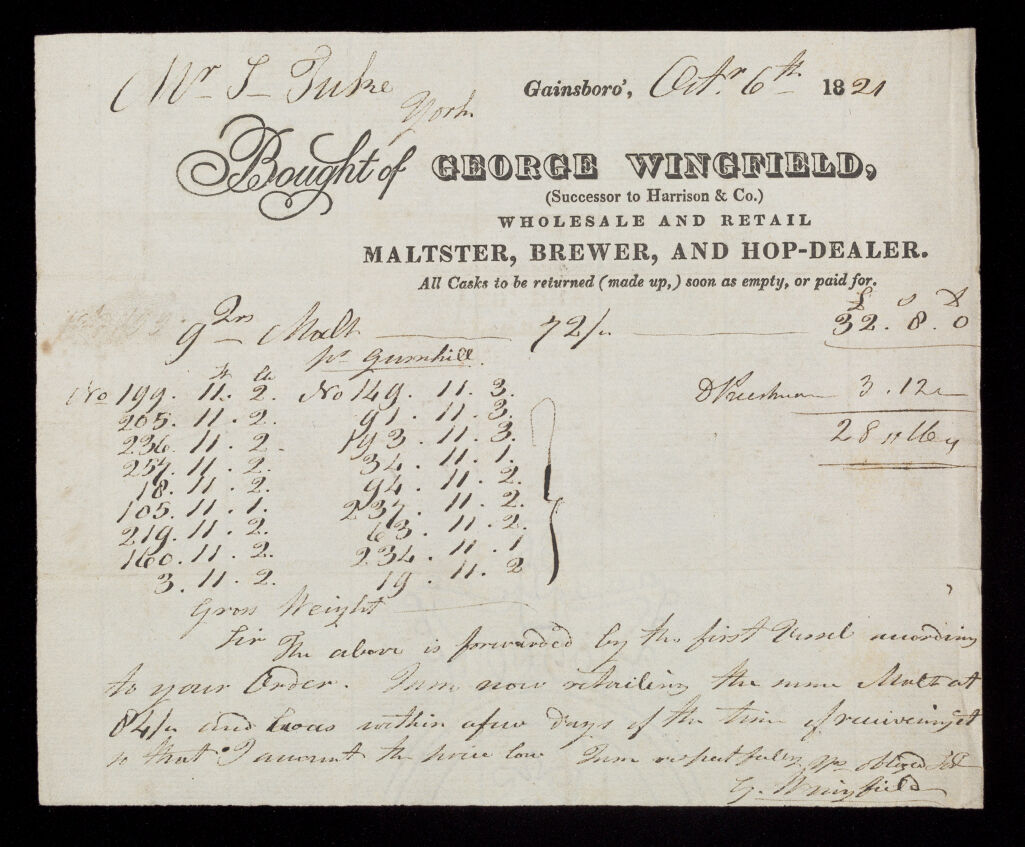 Mr S Tuke
York
Gainsboro', Octr. 6th 1821
Bought of GEORGE WINGFIELD,
(Successor to Harrison & Co.)
WHOLESALE AND RETAIL
MALTSTER, BREWER, AND HOP-DEALER.
All Casks to be returned (made up,) soon as empty, or paid for.
£ s D
9 Qrs Malt 72/- 32. 8. 0
pr Gurnhill.
No 199. 11. 2. No 149. 11. 3. 3. 12
205. 11. 2. 91. 11. 3.
236. 11. 2. 193. 11. 3. 28 16
257. 11. 2. 34. 11. 1.
18. 11. 2. 94. 11. 2.
105. 11. 1. 237. 11. 2.
219. 11. 2. 63. 11. 2.
160. 11. 2. 234. 11. 1
3. 11. 2. 19. 11. 2
Gross Weight
Sir The above is forwarded by the first Vessel according
to your Order. I am now retailing the same Malt at
84/- and within a few Days of the time of receiving it
so that I account the price low I am respectfully yrs obliged St
G. Wingfield